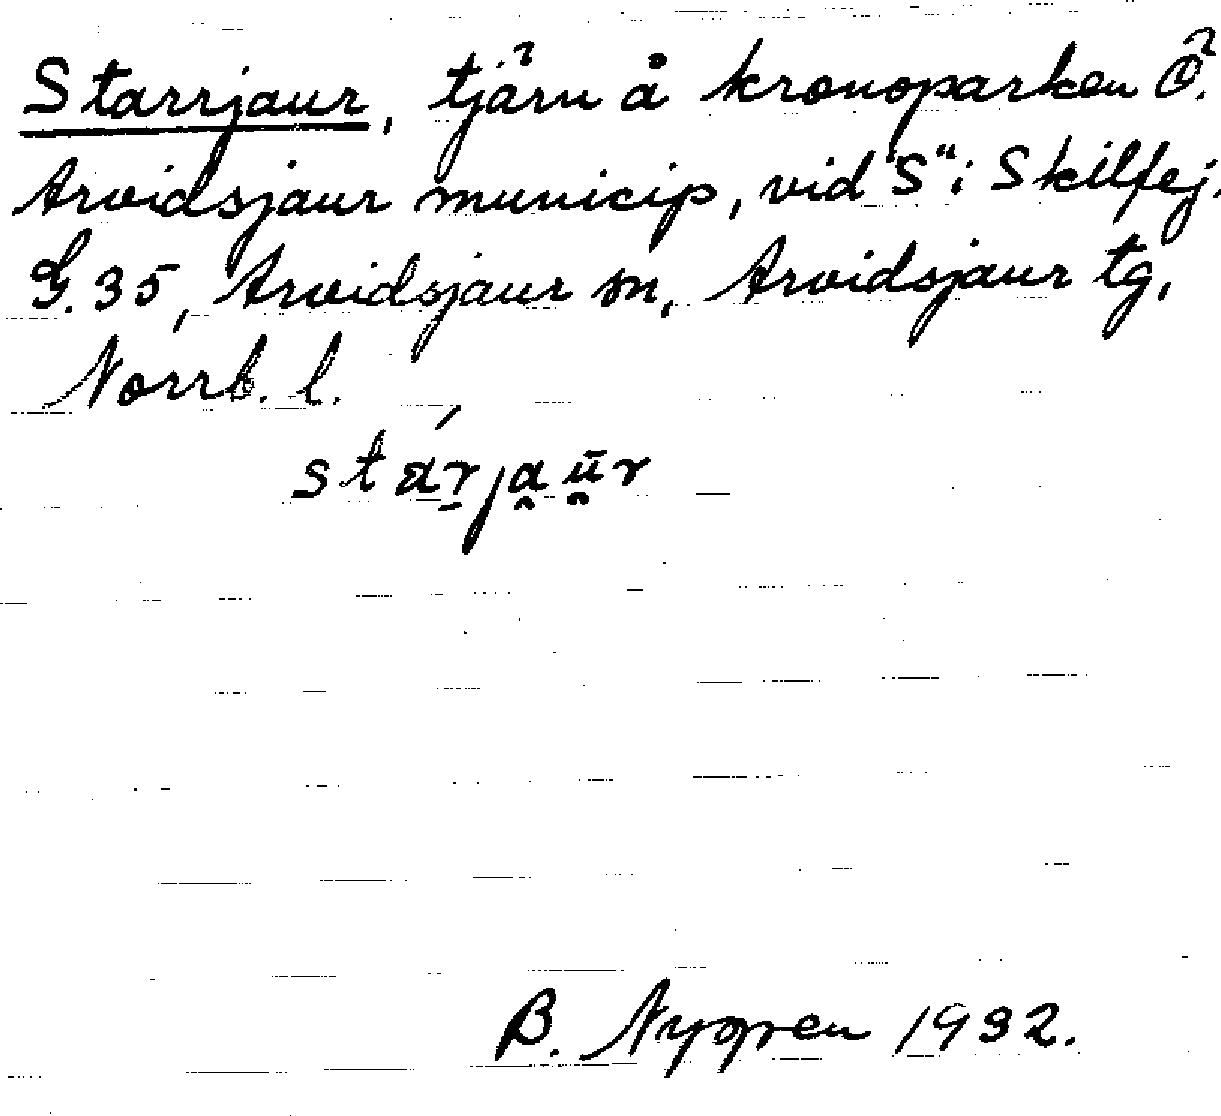 Starrjaur, tjärn å kronoparken Ö.
Arvidsjaur municip, vid "S" i Skilfej.
G. 35, Arvidsjaur sn, Arvidsjaur tg,
Norrb. l.
B. Nygren 1932.